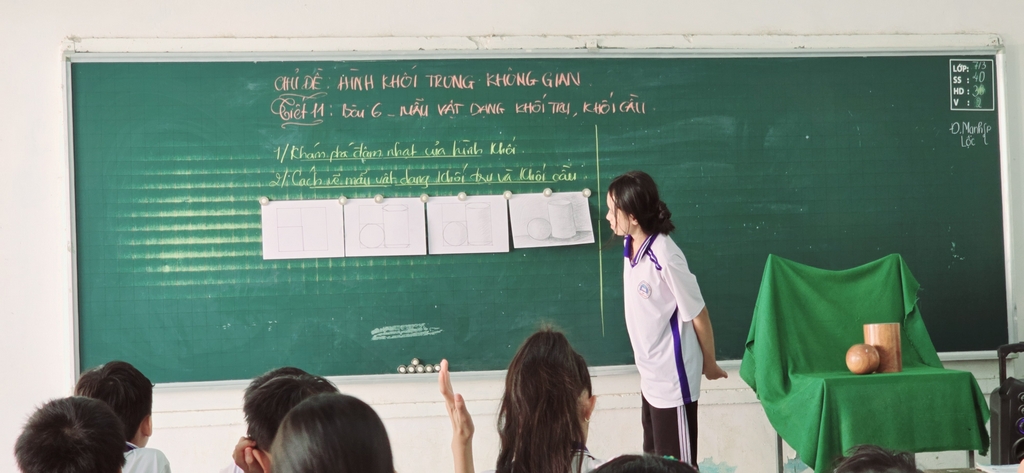 CHỦ ĐỀ: HÌNH KHỐI TRONG KHÔNG GIAN
Tiết 11: Bài 6 _ MẪU VẬT DẠNG KHỐI TRỤ, KHỐI CẦU
1/ Khám phá đậm nhạt của hình khối
2/ Cách vẽ mẫu vật dạng khối trụ và khối cầu
LỚP: 7/3
SS: 40
HD:
V:
Lộc